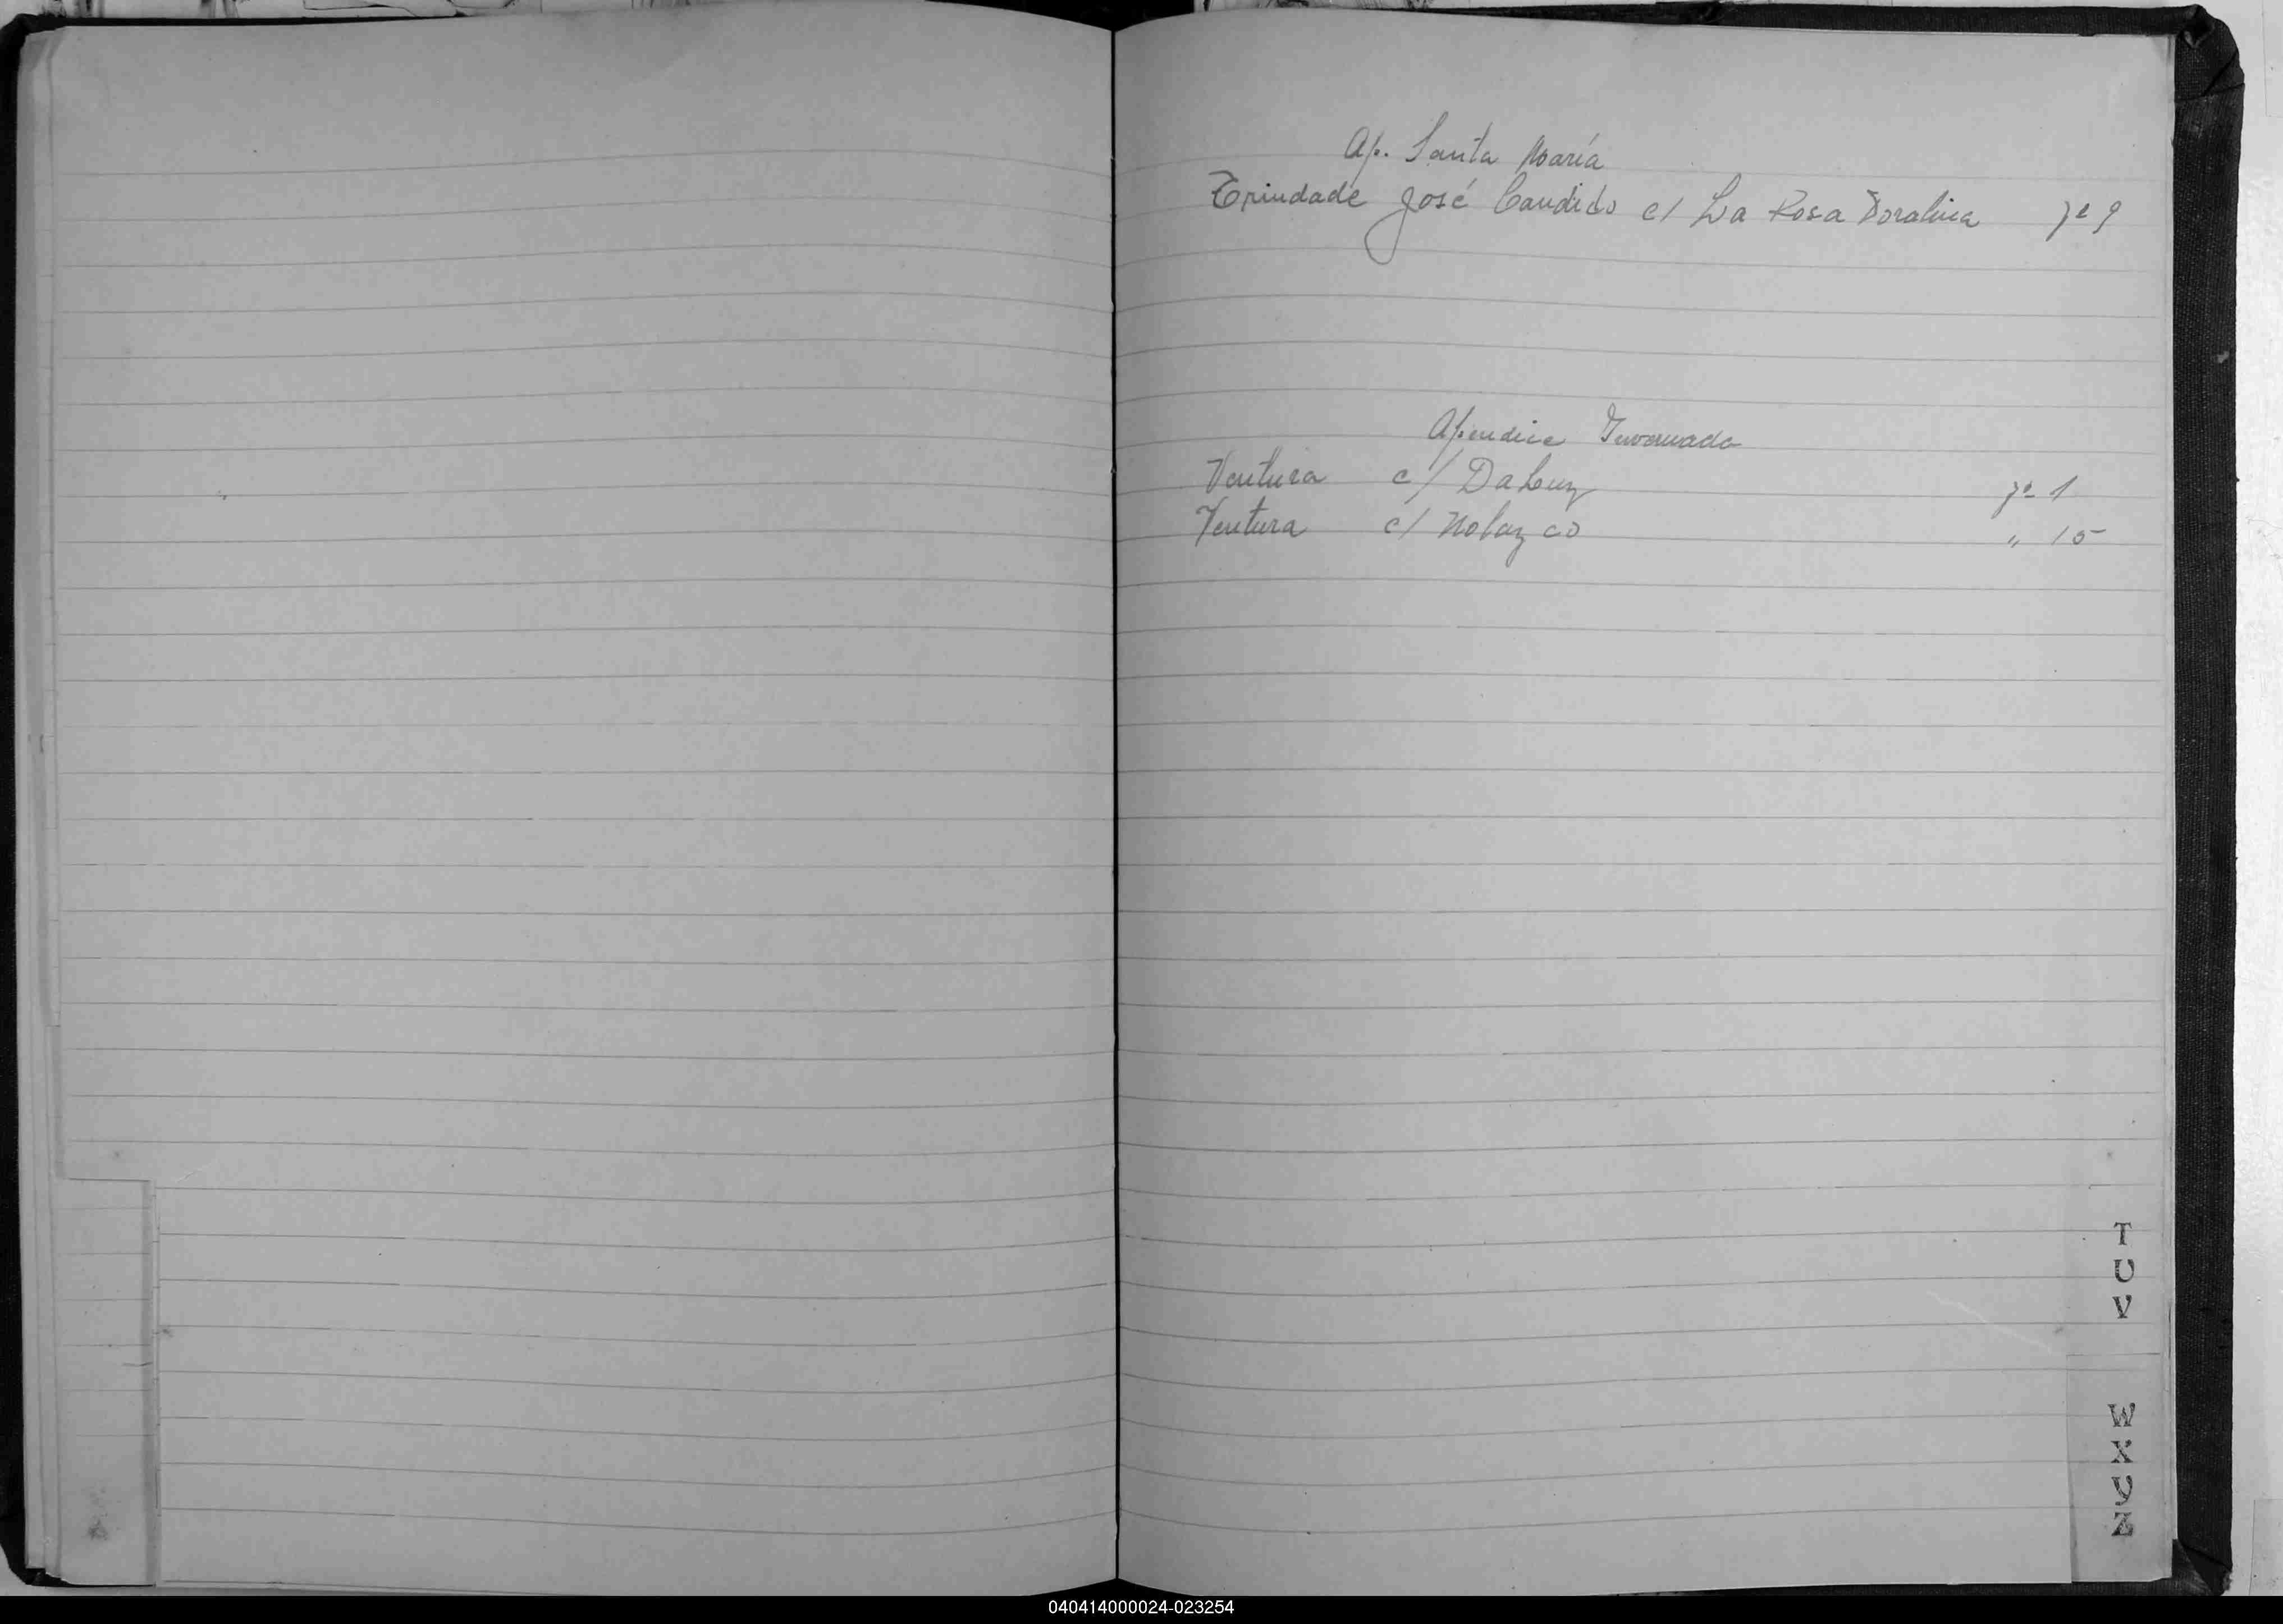 Ap. Santa María
Trindade José Candido c/ La Rosa Doralina jª 9
Apendice Invernada
Ventura c/ Da Luz jª 1
Ventura c/ Nolazco " 15
T
U
V
W
X
Y
Z
040414000024-023254